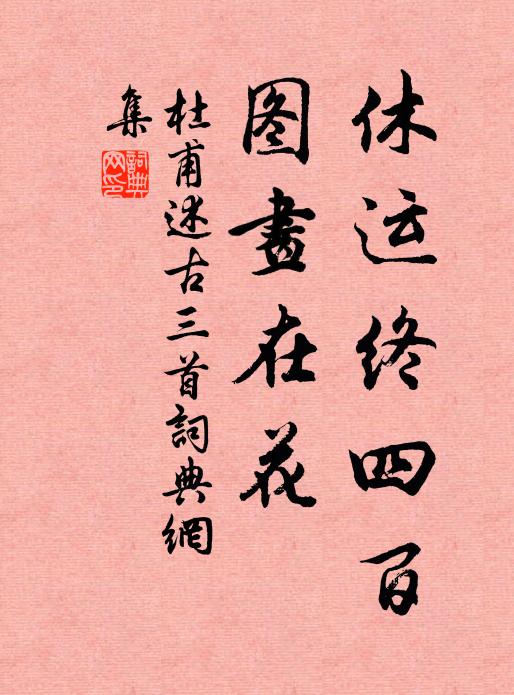 休运终四百
图画在花
杜甫述古三首詞典網
集
詞典网印